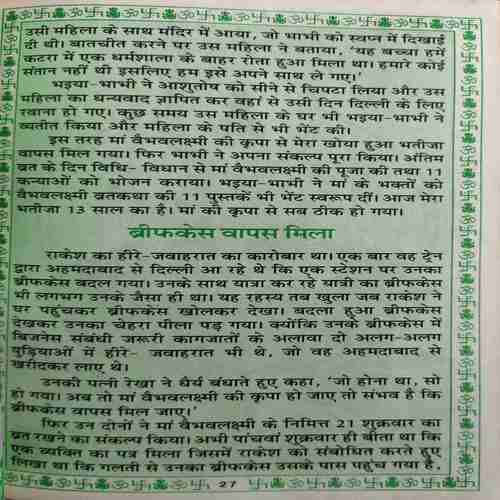 उसी महिला के साथ मंदिर में आया, जो भाभी को स्वप्न में दिखाई
दी थी। बातचीत करने पर उस महिला ने बताया, 'यह बच्चा हमें
कटरा में एक धर्मशाला के बाहर रोता हुआ मिला था। हमारे कोई
संतान नहीं थी इसलिए हम इसे अपने साथ ले गए।'
भइया-भाभी ने आशुतोष को सीने से चिपटा लिया और उस
महिला का धन्यवाद ज्ञापित कर वहां से उसी दिन दिल्ली के लिए
रवाना हो गए। कुछ समय उस महिला के घर भी भइया-भाभी ने
व्यतीत किया और महिला के पति से भी भेंट की।
इस तरह मां वैभवलक्ष्मी की कृपा से मेरा खोया हुआ भतीजा
वापस मिल गया। फिर भाभी ने अपना संकल्प पूरा किया। अंतिम
व्रत के दिन विधि- विधान से मां वैभवलक्ष्मी की पूजा की तथा 11
कन्याओं को भोजन कराया। भइया-भाभी ने मां के भक्तों को
वैभवलक्ष्मी व्रतकथा की 11 पुस्तकें भी भेंट स्वरूप दीं। आज मेरा
भतीजा 13 साल का है। मां की कृपा से सब ठीक हो गया।
ब्रीफकेस वापस मिला
राकेश का हीरे-जवाहरात का कारोबार था। एक बार वह ट्रेन
द्वारा अहमदाबाद से दिल्ली आ रहे थे कि एक स्टेशन पर उनका
ब्रीफकेस बदल गया। उनके साथ यात्रा कर रहे यात्री का ब्रीफकेस
भी लगभग उनके जैसा ही था। यह रहस्य तब खुला जब राकेश ने
घर पहुंचकर ब्रीफकेस खोलकर देखा। बदला हुआ ब्रीफकेस
देखकर उनका चेहरा पीला पड़ गया। क्योंकि उनके ब्रीफकेस में
बिजनेस संबंधी जरूरी कागजातों के अलावा दो अलग-अलग
पुड़ियाओं में हीरे- जवाहरात भी थे, जो वह अहमदाबाद से
खरीदकर लाए थे।
उनकी पत्नी रेखा ने धैर्य बंधाते हुए कहा, 'जो होना था, सो
हो गया। अब तो मां वैभवलक्ष्मी की कृपा हो जाए तो संभव है कि
ब्रीफकेस वापस मिल जाए।'
फिर उन दोनों ने मां वैभवलक्ष्मी के निमित्त 21 शुक्रवार का
व्रत रखने का संकल्प किया। अभी पांचवां शुक्रवार ही बीता था कि
एक व्यक्ति का पत्र मिला जिसमें राकेश को संबोधित करते हुए
लिखा था कि गलती से उनका ब्रीफकेस उसके पास पहुंच गया है,
27